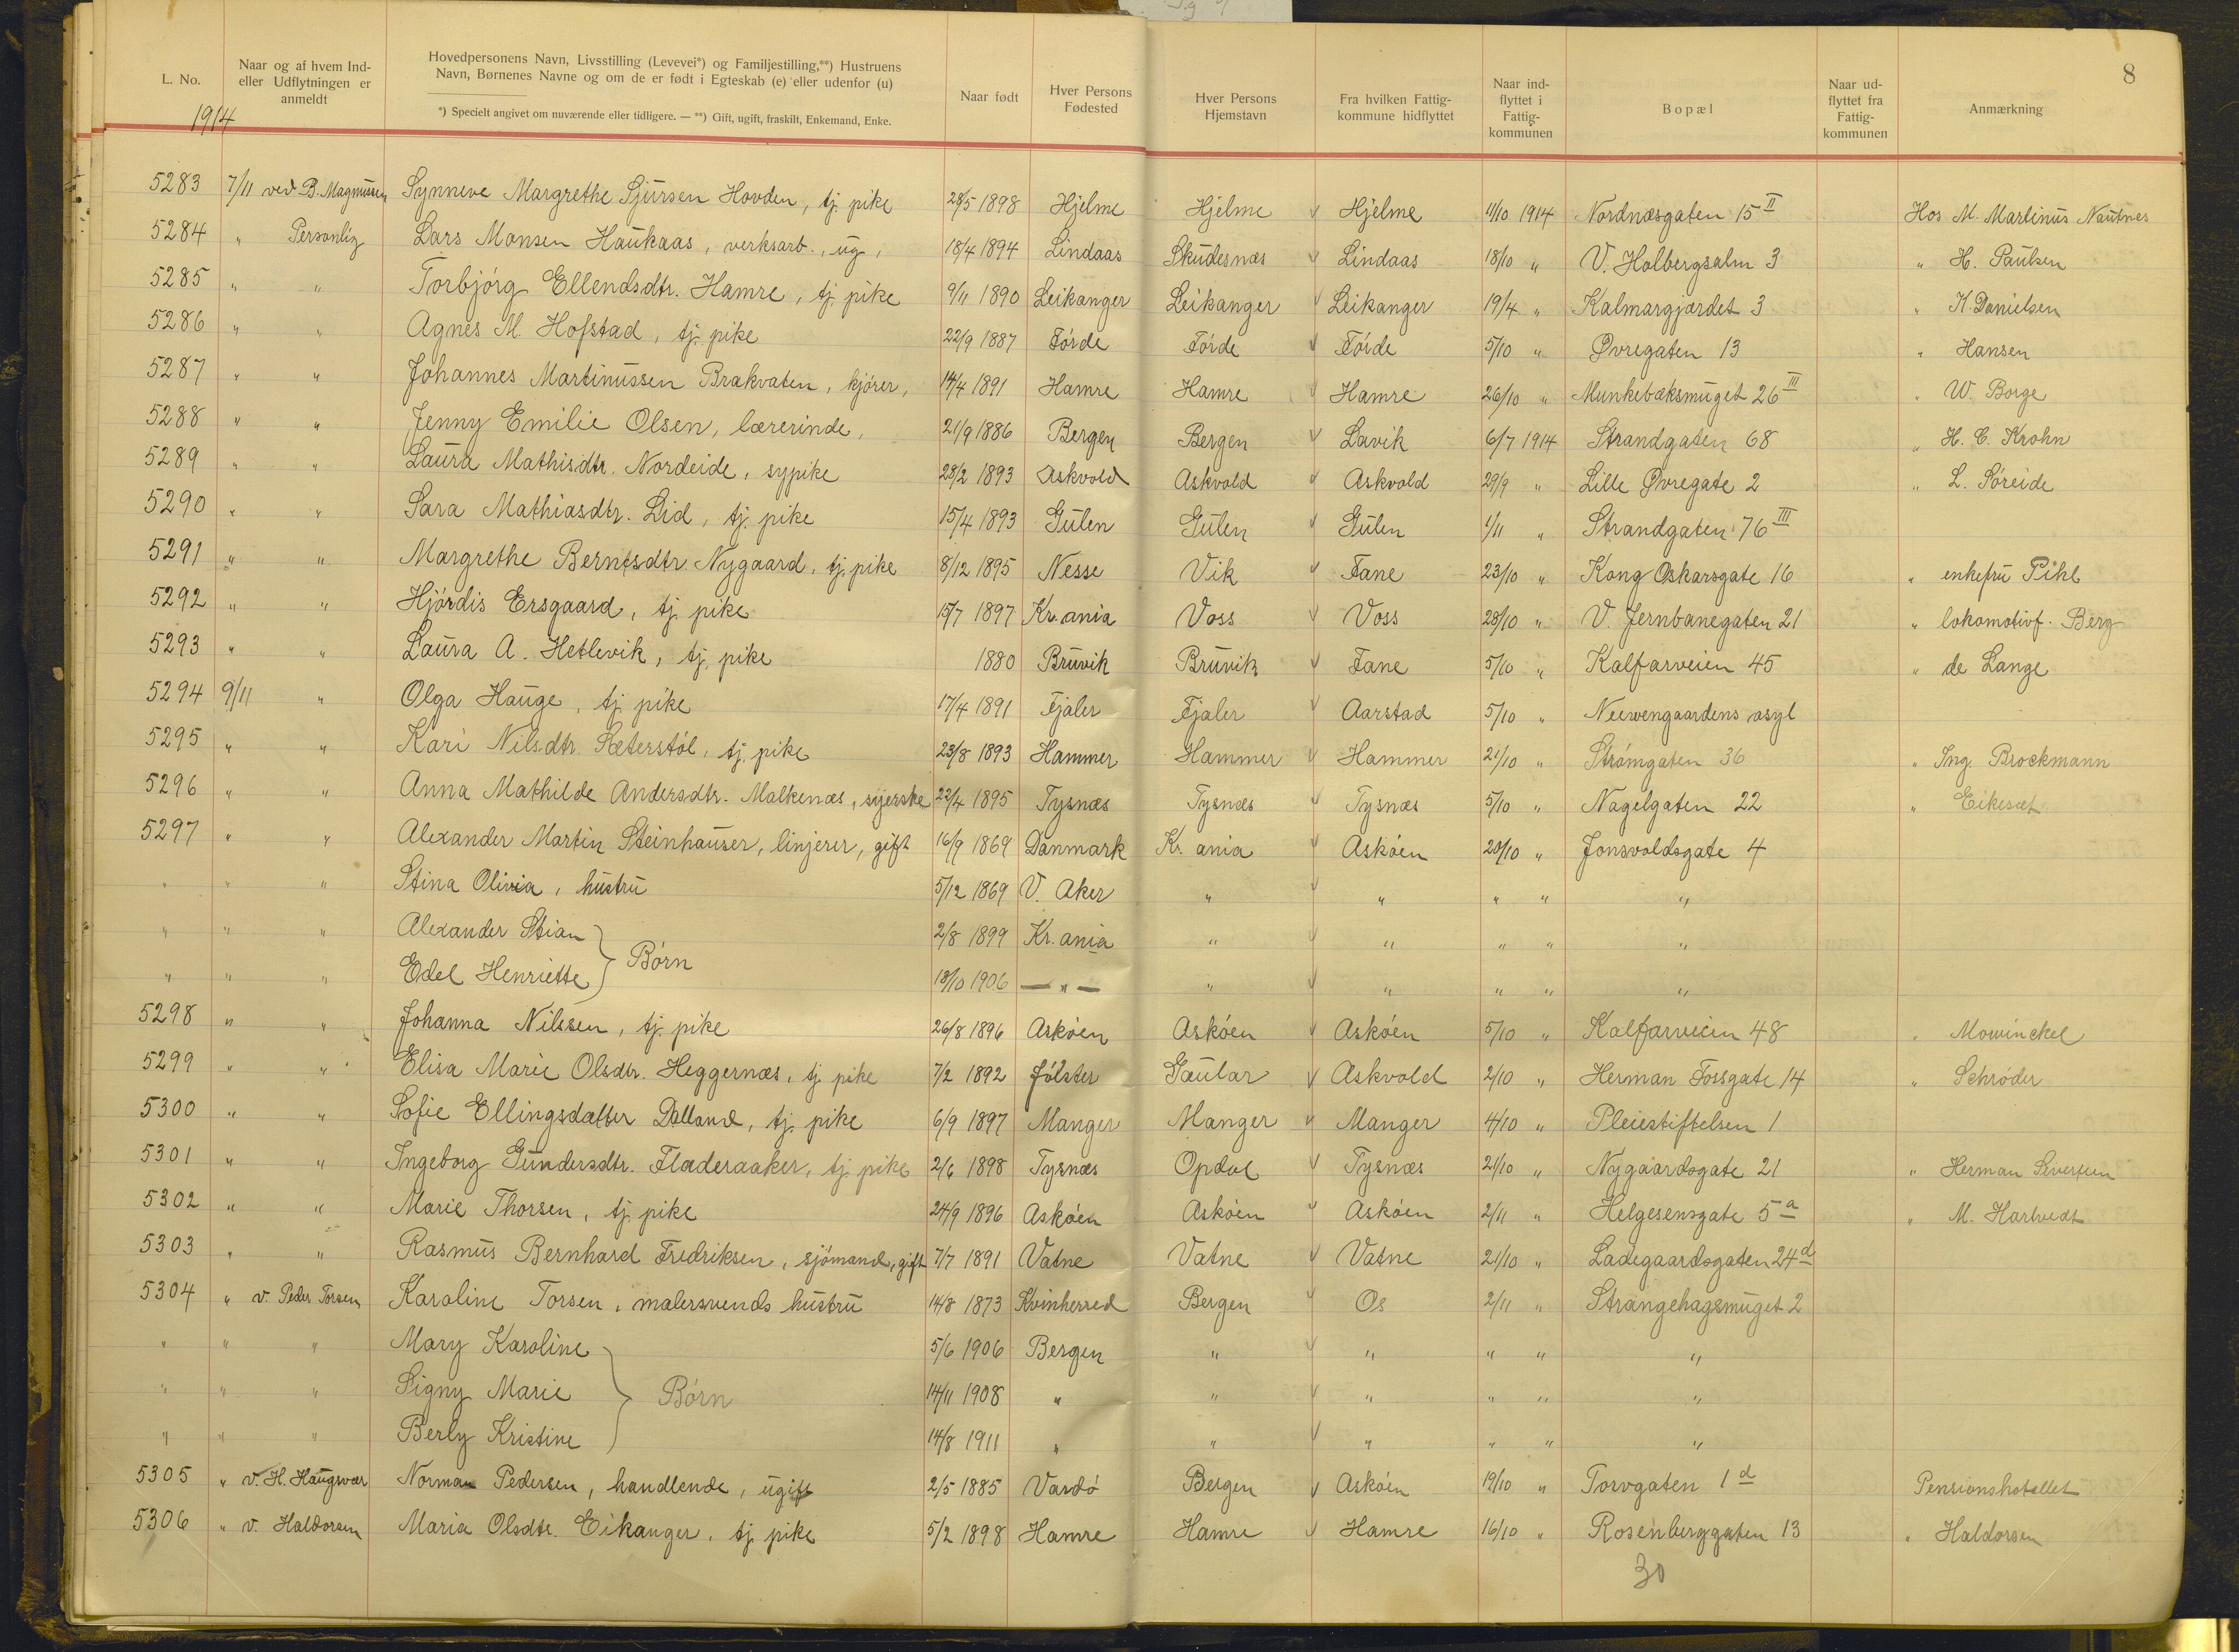 8
L. No.
Naar og af hvem Ind- eller Udflytningen er anmeldt
Hovedpersonens Navn, Livsstilling (Levevei*) og Familjestilling,**) Hustruens Navn, Børnenes Navne og om de er født i Egteskab (e) eller udenfor (u)
*) Specielt angivet om nuværende eller tidligere. — **) Gift, ugift, fraskilt, Enkemand, Enke.
Naar født
Hver Persons Fødested
Hver Persons Hjemstavn
Fra hvilken Fattig- kommune hidflyttet
Naar ind- flyttet i Fattig- kommunen
Bopæl
Naar ud- flyttet fra Fattig- kommunen
Anmærkning
1914
5283 7/11 ved B. Magnussen Synneve Margrethe Sjursen Hovden, tj. pike 28/5 1898 Hjelme Hjelme Hjelme 11/10 1914 Nordnæsgaten 15 II Hos M. Martinus Nautnes
5284 " Personlig Lars Monsen Haukaas, verksarb., ug, 18/4 1894 Lindaas Skudesnæs Lindaas 18/10 " V. Holbergsalm 3 " H. Paulsen
5285 " " Torbjórg Ellendsdtr. Hamre, tj. pike 9/11 1890 Leikanger Leikanger Leikanger 19/4 " Kalmargjærdet 3 " K. Danielsen
5286 " " Agnes M. Hofstad, tj. pike 22/9 1887 Fórde Fórde Fórde 5/10 " Øvregaten 13 " Hansen
5287 " " Johannes Martinussen Brakvaten, kjórer, 14/4 1891 Hamre Hamre Hamre 26/10 " Munkebæksmuget 26 III " W. Borge
5288 " " Jenny Emilie Olsen, lærerinde, 21/9 1886 Bergen Bergen Lavik 6/7 1914 Strandgaten 68 " H. C. Krohn
5289 " " Laura Mathisdtr. Nordeide, sypike 28/2 1893 Askvold Askvold Askvold 29/9 " Lille Øvregate 2 " L. Sóreide
5290 " " Sara Mathiasdtr. Lid, tj. pike 15/4 1893 Gulen Gulen Gulen 1/11 " Strandgaten 76 III
5291 " " Margrethe Berntsdtr. Nygaard, tj. pike 8/12 1895 Nesse Vik Fane 23/10 " Kong Oskarsgate 16 " enkefru Pihl
5292 " " Hjórdis Ersgaard, tj. pike 15/7 1897 Kr.ania Voss Voss 28/10 " V. Jernbanegaten 21 " lokomotivf. Berg
5293 " " Laura A. Hetlevik, tj. pike 1880 Bruvik Bruvik Fane 5/10 " Kalfarveien 45 " de Lange
5294 9/11 " Olga Hauge, tj. pike 17/4 1891 Fjaler Fjaler Aarstad 5/10 " Neewengaardens asyl
5295 " " Kari Nilsdtr. Sæterstól, tj. pike 23/8 1893 Hammer Hammer Hammer 21/10 " Strómgaten 36 " Ing. Brockmann
5296 " " Anna Mathilde Andersdtr. Malkenæs, syerske 22/4 1895 Tysnæs Tysnæs Tysnæs 5/10 " Nagelgaten 22 " Eikesæt
5297 " " Alexander Martin Steinhauser, linjerer, gift 16/9 1869 Danmark Kr.ania Askóen 20/10 " Jonsvoldsgate 4
" " " Stina Olivia, hustru 5/12 1869 V. Aker " " " " "
" " " Alexander Stian } Børn 2/8 1899 Kr.ania " " " " "
" " " Edel Henriette } 18/10 1906 — " — " " " " "
5298 " " Johanna Nilssen, tj. pike 26/8 1896 Askóen Askóen Askóen 5/10 " Kalfarveien 48 " Mowinckel
5299 " " Elisa Marie Olsdtr. Heggernæs, tj. pike 7/2 1892 Jólster Gaular Askvold 2/10 " Herman Fossgate 14 " Schróder
5300 " " Sofie Ellingsdatter Dalland, tj. pike 6/9 1897 Manger Manger Manger 4/10 " Pleiestiftelsen 1
5301 " " Ingeborg Gundersdtr. Fladeraaker, tj. pike 2/6 1898 Tysnæs Opdal Tysnæs 21/10 " Nygaardsgate 21 " Herman Sivertsen
5302 " " Marie Thorsen, tj. pike 24/9 1896 Askóen Askóen Askóen 2/11 " Helgesensgate 5 a " M. Hartvedt
5303 " " Rasmus Bernhard Fredriksen, sjómand, gift 7/7 1891 Vatne Vatne Vatne 21/10 " Ladegaardsgaten 24 d
5304 " v. Peder Torsen Karoline Torsen, malersvends hustru 14/8 1873 Kvinherred Bergen Os 2/11 " Strangehagsmuget 2
" " " Mary Karoline } 5/6 1906 Bergen " " " " "
" " " Signy Marie } Børn 14/11 1908 " " " " " "
" " " Berly Kristine } 14/8 1911 " " " " " "
5305 " v. H. Haugsvær Norman Pedersen, handlende, ugift 2/5 1885 Vardó Bergen Askóen 19/10 " Torvgaten 1 d Pensionshotellet
5306 " v. Haldorsen Maria Olsdtr. Eikanger, tj. pike 5/2 1898 Hamre Hamre Hamre 16/10 " Rosenberggaten 13 " Haldorsen
30